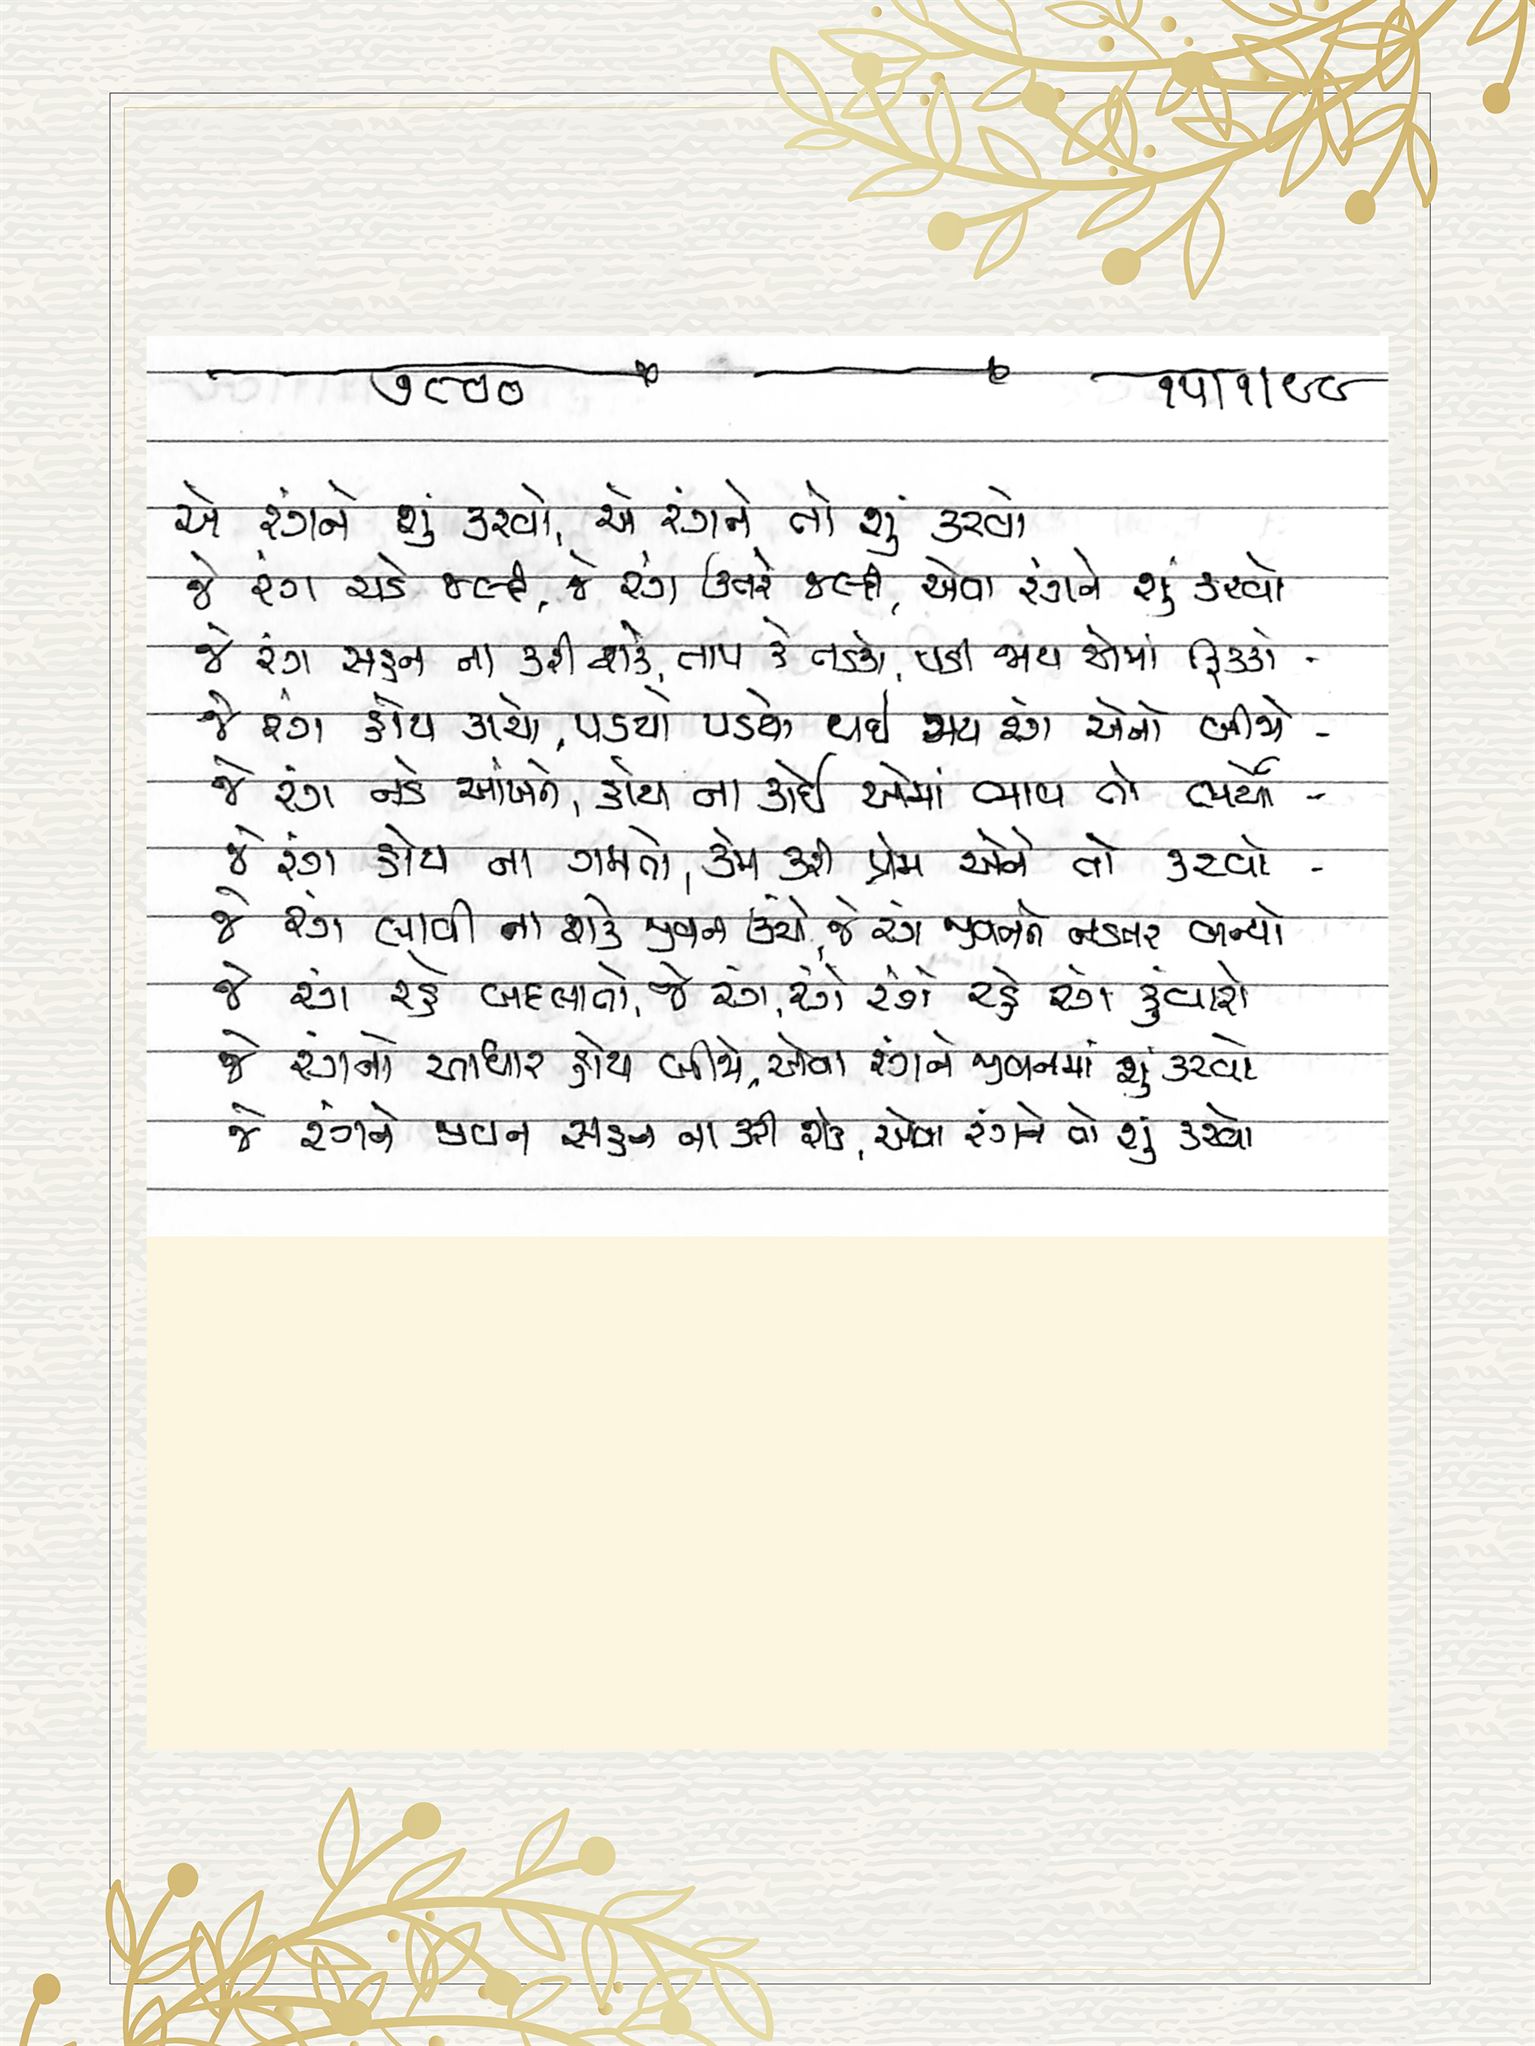 ૭૮૭૦ ૧૫।૧।૯૯
એ રંગને શું કરવો, એ રંગને તો શું કરવો
જે રંગ ચડે જલ્દી, જે રંગ ઉતરે જલ્દી, એવા રંગને શું કરવો
જે રંગ સહન ના કરી શકે, તાપ કે તડકો, પડી જાય એમાં ફિક્કો -
જે રંગ હોય કાચો, પડયો પડકો થઈ જાય રંગ એનો બીજો -
જે રંગ નડે આંખને, હોય ના કોઈ એમાં ભાવ તો ભર્યો -
જે રંગ હોય ના ગમતો, કેમ કરી પ્રેમ એને તો કરવો -
જે રંગ લાવી ના શકે જીવન ઉંચે, જે રંગ જીવનને નડતર બન્યો
જે રંગ રહે બદલાતો, જે રંગ, રંગે રંગે રહે રંગ ફુંવાશે
જે રંગનો આધાર હોય બીજો, એવા રંગને જીવનમાં શું કરવો
જે રંગને જીવન સહન ના કરી શકે, એવા રંગને તો શું કરવો